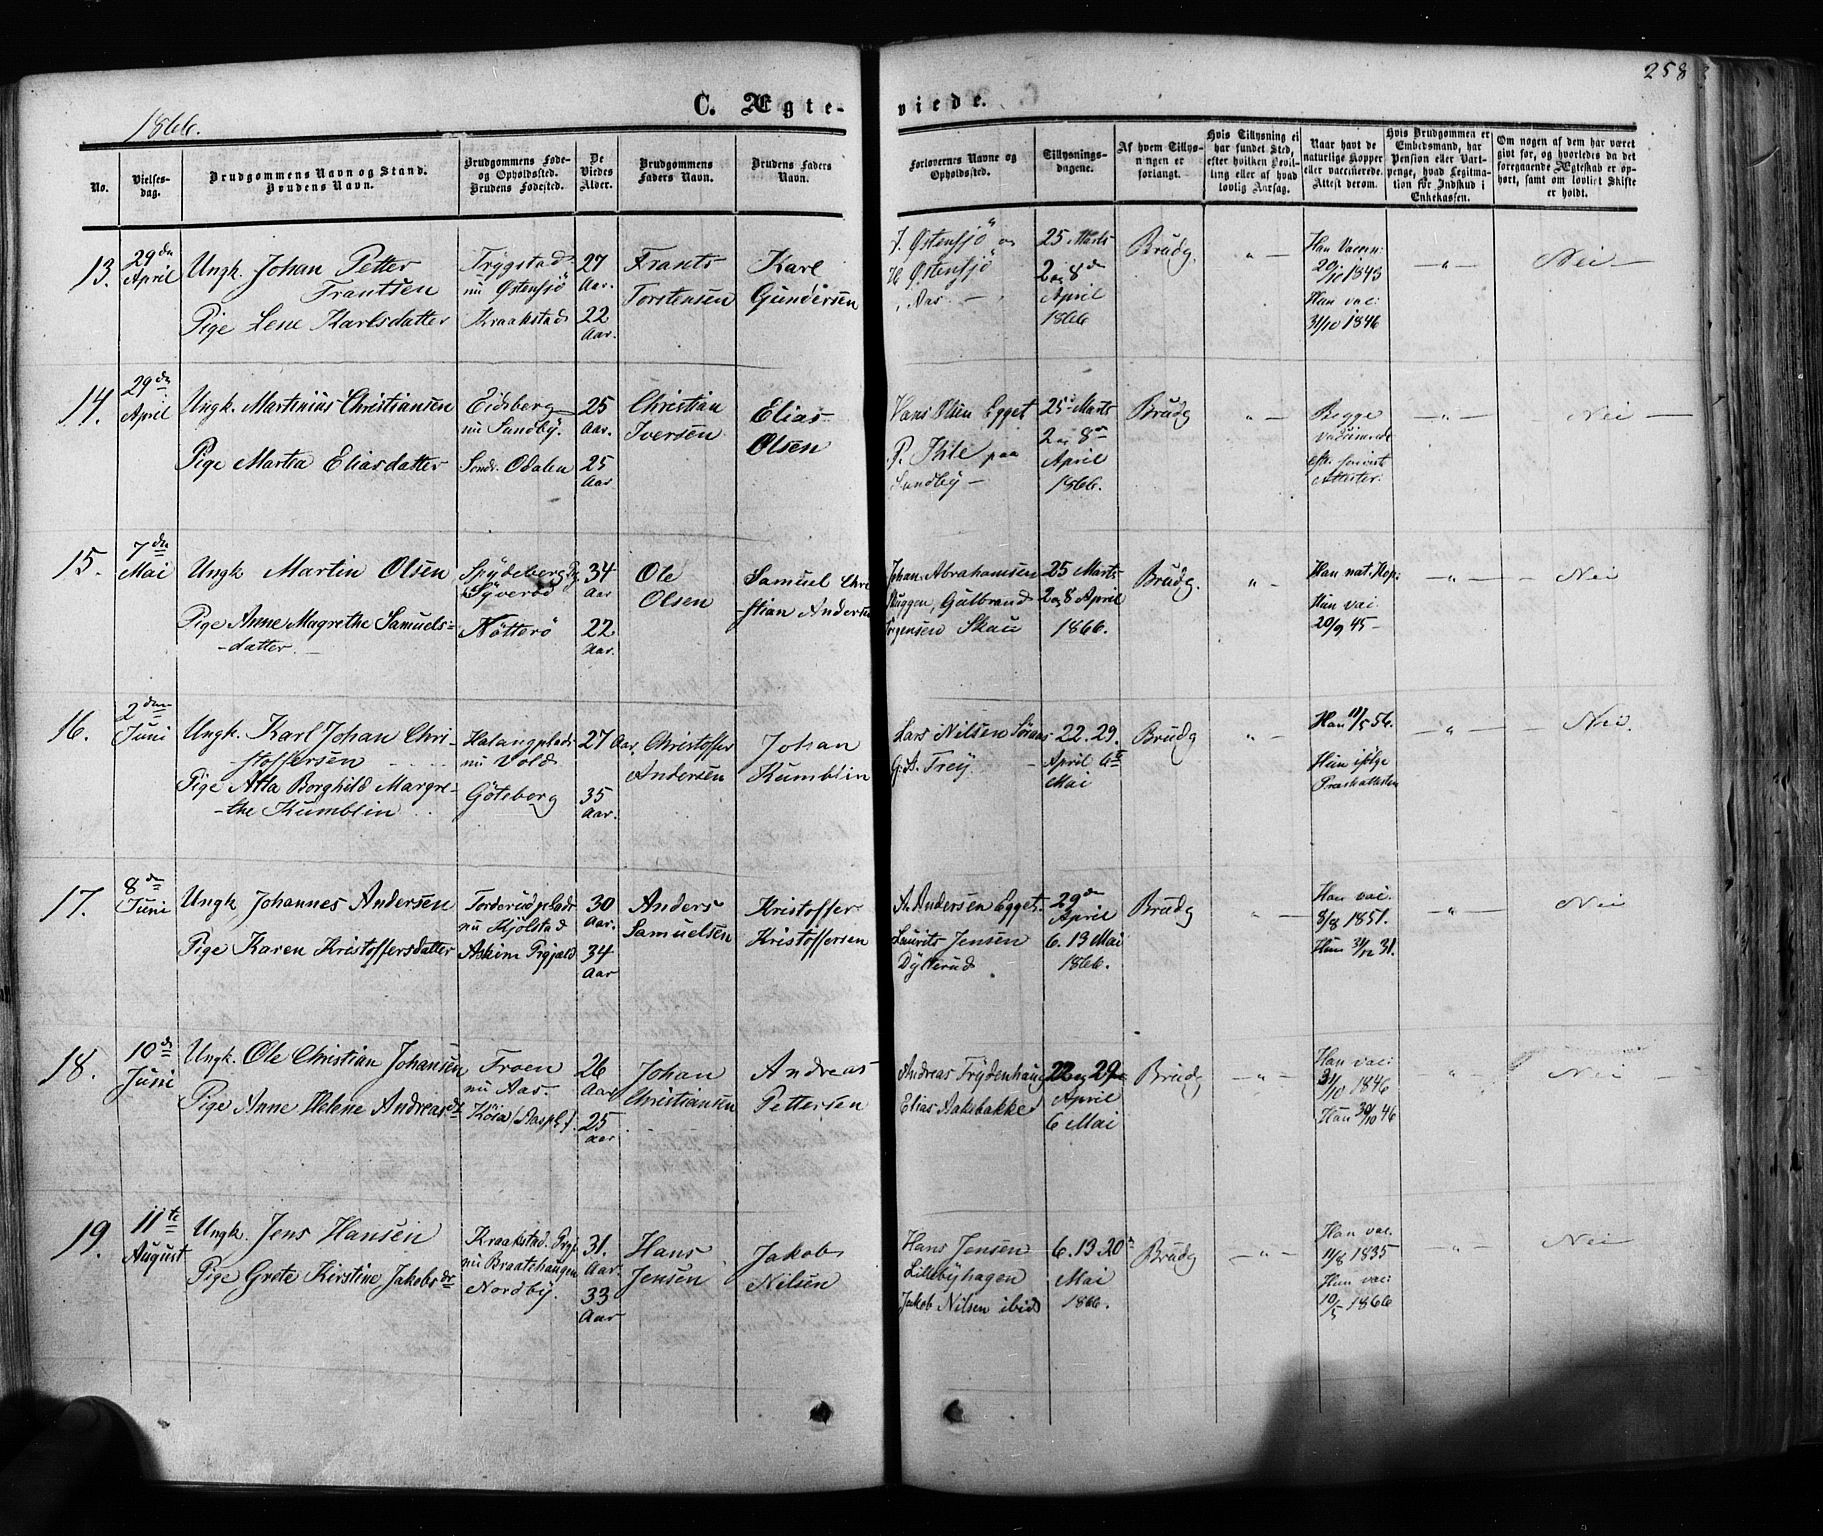 258
1866.
C. Ægte-
viede.
No.
Vielses-
dag.
Brudgommens Navn og Stand.
Brudens Navn.
Brudgommens Føde-
og Opholdssted.
Brudens Fødested.
De
Viedes
Alder.
Brudgommens
Faders Navn.
Brudens Faders
Navn.
Forlovernes Navne og
Opholdssted.
Tillysnings-
dagene.
Af hvem Tillys-
ningen er
forlangt.
Hvis Tillysning ei
har fundet Sted,
efter hvilken Bevil-
ling eller af hvad
lovlig Aarsag.
Naar havt de
naturlige Kopper
eller vaccinerede.
Attest derom.
Hvis Brudgommen er
Embedsmand, har
Pension eller Vart-
penge, hvad Legitima-
tion for Indskud i
Enkekassen.
Om nogen af dem har været
givt før, og hvorledes da det
foregaaende Ægteskab er op-
hørt, samt om lovligt Skifte
er holdt.
13.
29 de
April
Ungk. Johan Petter
Frantsen
Pige Lene Karlsdatter
Trygstad
nu Østensjö
Kraakstad
27
Aar.
22
Aar.
Frants
Torstensen
Karl
Gundersen
J. Østensjö og
H. Østensjö
Aas
25 Marts
2 og 8 de
April
1866
Brudg.
— " —
Han Vaccin:
20/10 1843
Hun vac:
31/10 1846
— " —
Nei —
14.
29 de
April
Ungk. Martinius Christiansen
Pige Martea Eliasdatter
Eidsberg
nu Sundby.
Sondr. Odalen
25
Aar.
25
Aar.
Christian
Iversen
Elias
Olsen
Hans Olsen Egget
P. Ihle paa
Sundby —
25 Marts
2 og 8 de
April
1866.
Brudg
" —
Begge
vaccinerede
eft. foreviste
Attester.
— " —
Nei —
15.
7 de
Mai
Ungk Martin Olsen
Pige Anne Magrethe Samuels-
-datter.
Spydeberg Pg.
Syverød
Nötterö
34
Aar
22
Aar.
Ole
Olsen
Samuel Chri
-stian Anders
Johan Abrahamsen
Skuggen, Gulbrand
Jörgensen Skau
25 Marts
2 og 8 April
1866.
Brudg.
" —
Han nat. Kop:
Hun vac.
20/9 45 —
— " —
— Nei
16.
2 den
Juni
Ungk. Karl Johan Chri-
-stoffersen
Pige Atta Borghild Margre-
-the Kumblin
nu Vold
Göteborg
27 Aar.
35
Aar.
Christoffer
Andersen
Johan
Kumblin
Lars Nilsen
G. A. Frey.
22. 29.
April 6 te
Mai
Brudg
" —
Han 11/5 56.
Hun ifölge
— " —
— Nei.
17.
8 de
Juni
Ungk Johannes Andersen
Pige Karen Kristoffersdatter
nu Kjölstad
Askim Prgjæld
30
Aar.
34
Aar
Anders
Samuelsen
Kristoffer
Kristoffersen
A. Andersen Egget.
Laurits Jensen
Dylterud
29 de
April
6. 13 Mai
1866.
Brudg
— " —
Han vac.
8/8 1851.
Hun 31/12 31.
— " —
Nei
18.
10 de
Juni
Ungk. Ole Christian Johansen
Pige Anne Helene Andreasdt
Froen
nu Aas.
26
Aar
25
aar
Johan
Christiansen
Andreas
Pettersen
Andreas Frydenhaug
Elias Aaksbakke
22 og 29 de
April
6 Mai
Brudg
— " —
Han vac:
31/10 1846
Hun 30/10 46
— " —
Nei —
19.
11 te
August
Ungk. Jens Hansen
Pige Grete Kirstine Jakobsdr
Kraakstad. Prgj
nu Braatehaugen
Nordby.
31.
Aar.
33
Aar
Hans
Jensen
Jakob
Nilsen
Hans Jensen
Lillebyhagen
Jakob Nilsen ibid
6. 13 20
Mai
1866.
Brudg
— " —
Han vac.
11/8 1835
Hun vac:
10/5 1866
— " —
Nei